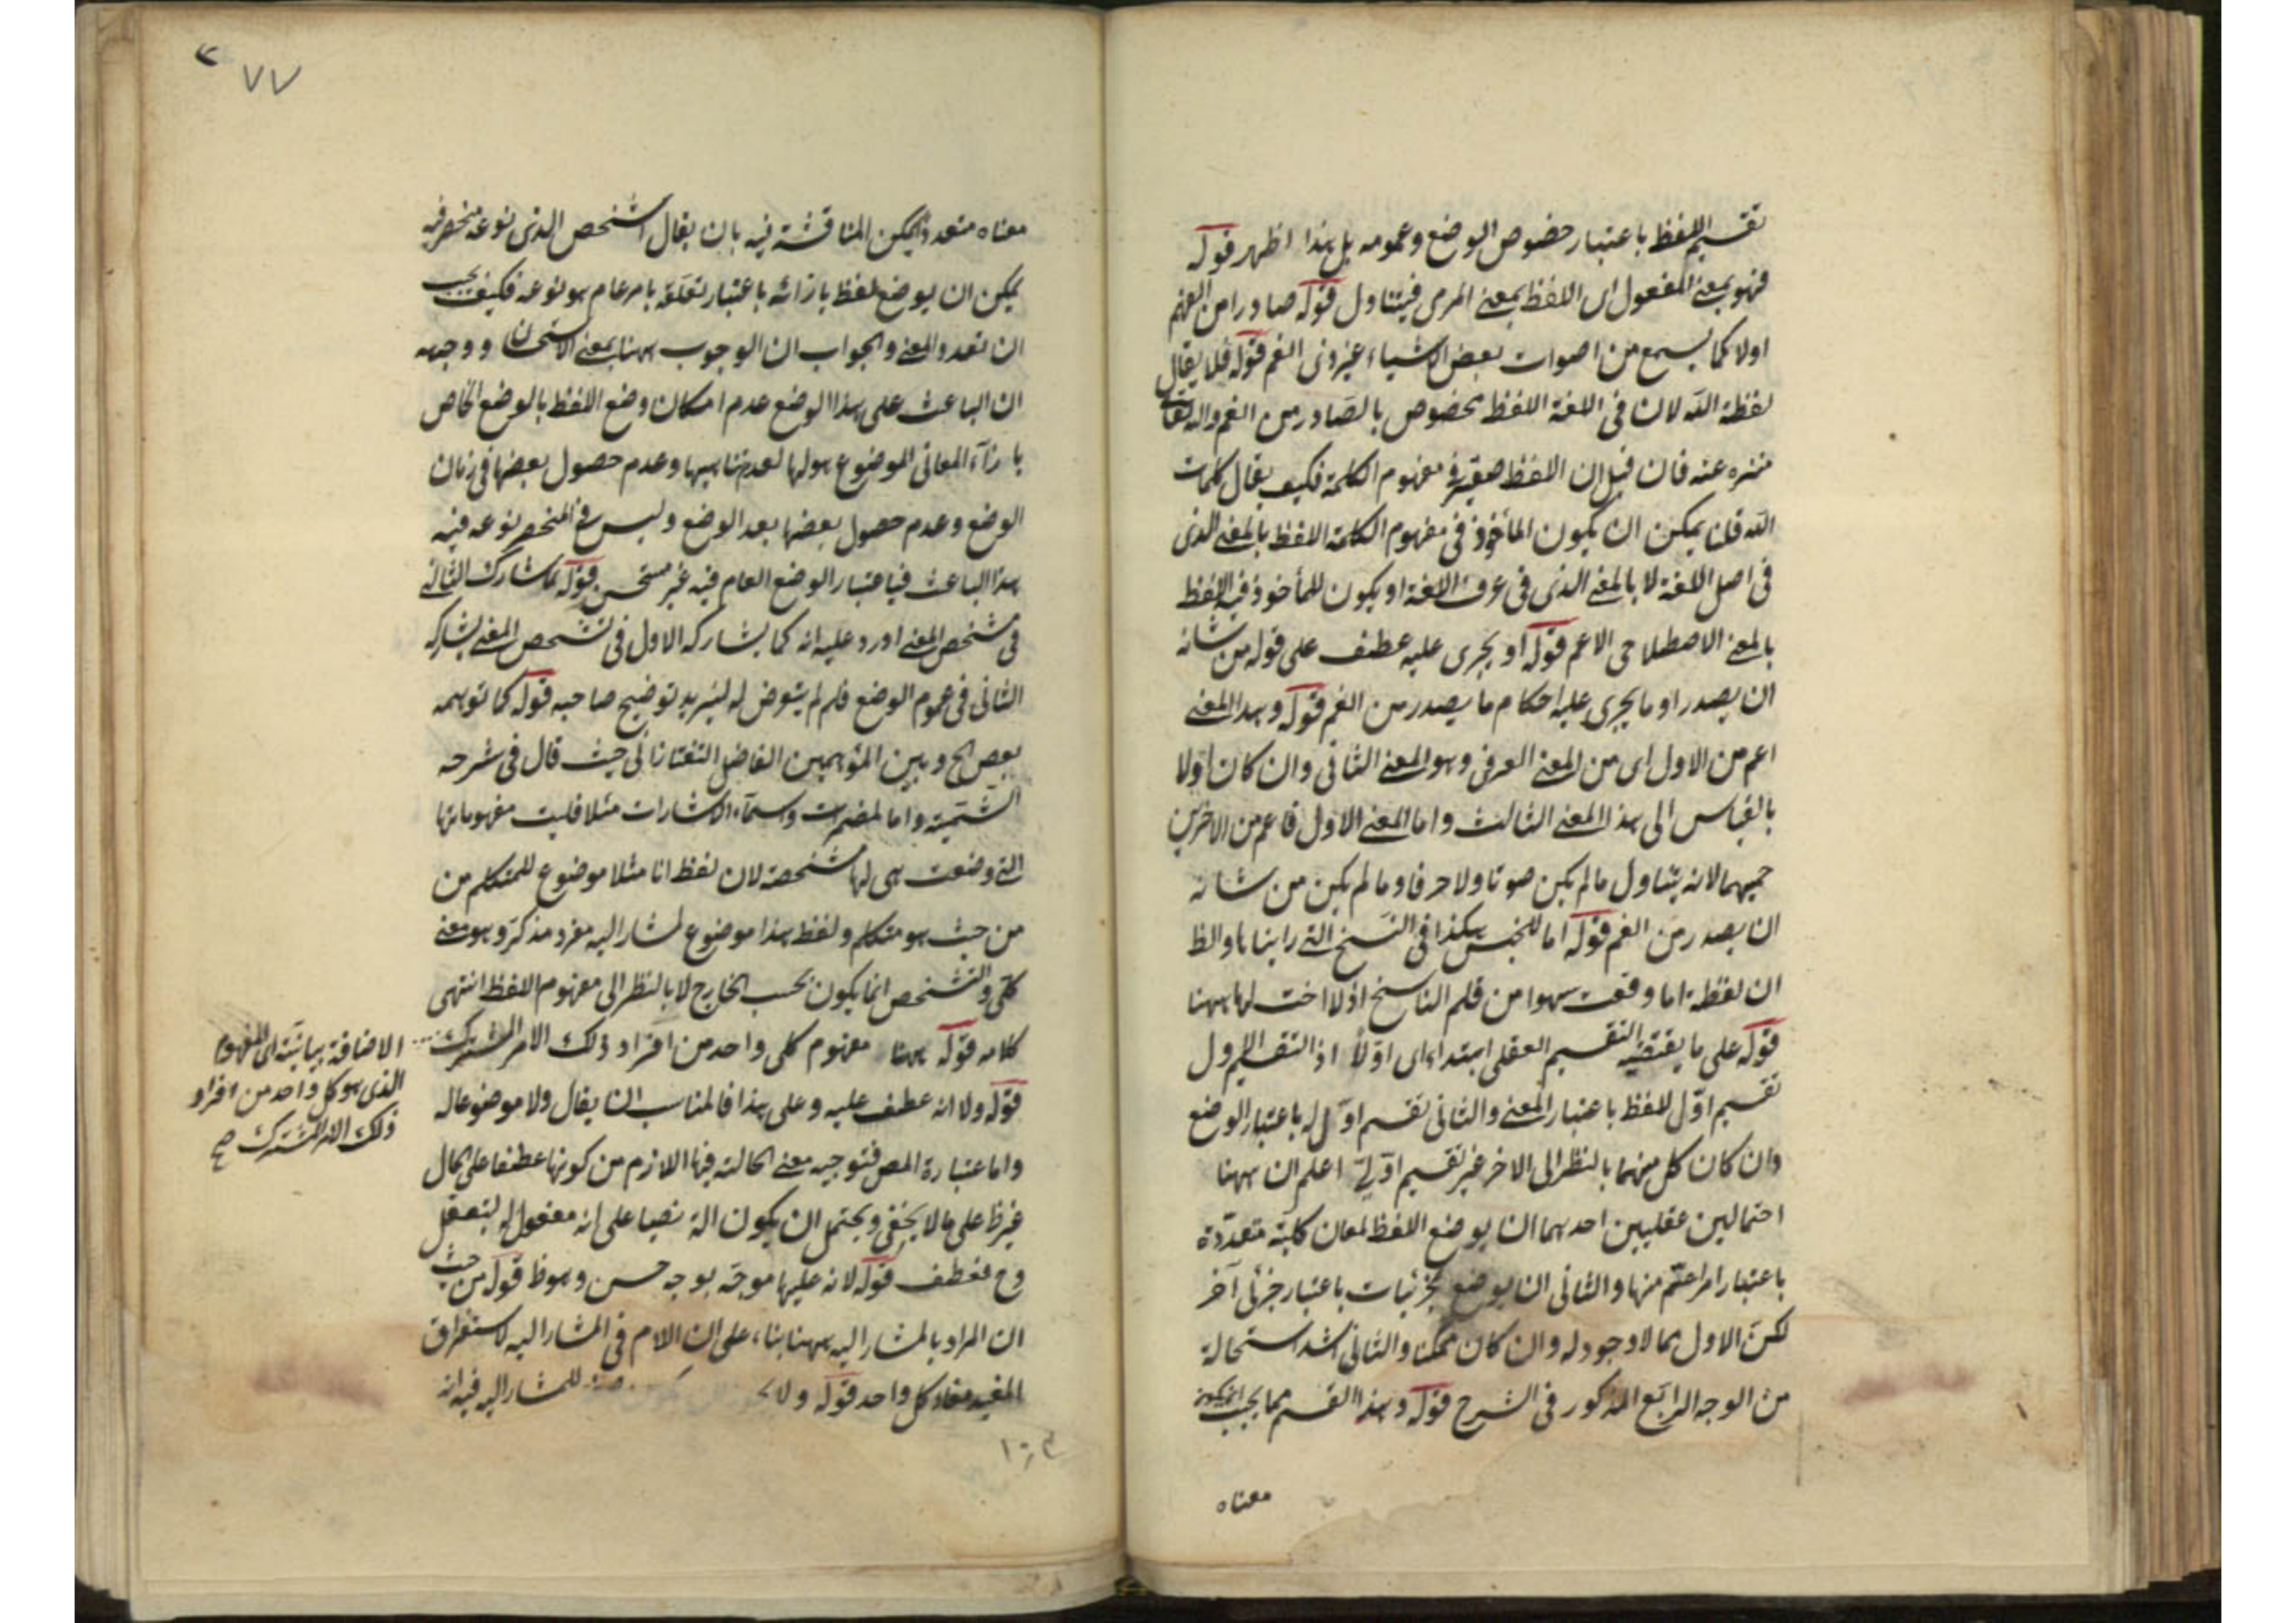 تقسيم اللفظ باعتبار خصوص الوضع وعمومه بل هذا اظهر قوله
فهو بمعنى المفعول اى اللفظ بمعنى المرمى فيتناول قوله صادرا من الفم
اولا كما يسمع من اصوات بعض الاشياء غير ذى الفم قوله فلا يقال
لفظة الله لان فى اللغة اللفظ مخصوص بالصادر من الفم والله تعالى
منزه عنه فان قيل ان اللفظ معتبر فى مفهوم الكلمة فكيف يقال كلمات
الله قلنا يمكن ان يكون المأخوذ فى مفهوم الكلمة اللفظ بالمعنى الذى
فى اصل اللغة لا بالمعنى الذى فى عرف اللغة او يكون المأخوذ فيه اللفظ
بالمعنى الاصطلاحى الاعم قوله او يجرى عليه عطف على قوله من شانه
ان يصدر او ما يجرى عليه احكام ما يصدر من الفم قوله وهذا المعنى
اعم من الاول اى من المعنى العرفى وهو المعنى الثانى وان كان اولا
بالقياس الى هذا المعنى الثالث واما المعنى الاول فاعم من الاخرين
جميعهما لانه يتناول ما لم يكن صوتا ولا حرفا وما لم يكن من شانه
ان يصدر من الفم قوله اما للجنس هكذا فى النسخ التى رايناها والظ
ان لفظة اما وقعت سهوا من قلم الناسخ اذ لا اخت لها ههنا
قوله على ما يقتضيه التقسيم العقلى ابتداء اى اولا اذ التقسيم الاول
تقسيم اول للفظ باعتبار المعنى والثانى تقسيم اول له باعتبار الوضع
وان كان كل منهما بالنظر الى الاخر غير تقسيم اولى اعلم ان ههنا
احتمالين عقليين احدهما ان يوضع اللفظ لمعان كلية متعددة
باعتبار امر اعم منها والثانى ان يوضع لجزئيات باعتبار جزئى آخر
لكن الاول مما لا وجود له وان كان ممكنا والثانى اشد استحالة
من الوجه الرابع المذكور فى الشرح قوله وهذا القسم مما يجب ان يكون
معناه
٧٧
معناه متعددا يمكن المناقشة فيه بان يقال الشخص الذى نوعه منحصر فيه
يمكن ان يوضع لفظ بازائه باعتبار تعلقه بامر عام هو نوعه فكيف يجب
ان تعدد المعنى والجواب ان الوجوب ههنا بمعنى الاستحسان ووجهه
ان الباعث على هذا الوضع عدم امكان وضع اللفظ بالوضع الخاص
بازآء المعانى الموضوع هو لها لعدم تناهيها وعدم حصول بعضها فى زمان
الوضع وعدم حصول بعضها بعد الوضع وليس فى المنحصر نوعه فيه
هذا الباعث فباعتبار الوضع العام فيه غير مستحسن قوله لما شارك الثانى
فى تشخص المعنى اورد عليه انه كما يشاركه الاول فى تشخص المعنى يشاركه
الثانى فى عموم الوضع فلم لم يتعرض له ليزيد توضيح صاحبه قوله كما توهمه
بعض الخ وبين المتوهمين الفاضل التفتازانى حيث قال فى شرحه
الشمسية واما المضمرات واسمآء الاشارات مثلا فليست مفهوماتها
التى وضعت هى لها مشخصة لان لفظ انا مثلا موضوع للمتكلم من
من حيث هو متكلم ولفظ هذا موضوع لمشار اليه مفرد مذكر وهو معنى
كلى والتشخص انما يكون بحسب الخارج لا بالنظر الى مفهوم اللفظ انتهى
كلامه قوله ههنا مفهوم كلى واحد من افراد ذلك الامر المشترك
قوله ولا انه عطف عليه وعلى هذا فالمناسب ان يقال ولا موضوعا له
واما عبارة المص فتوجيه معنى الحالية فيها اللازم من كونها عطفا على الحال
غير ظ على ما لا يخفى ويحتمل ان يكون آلة نصبا على انه مفعول له لتعقل
وح فعطف قوله لانه عليها موجه بوجه حسن وهو ظ قوله من حيث
ان المراد بالمشار اليه ههنا بناء على ان اللام فى المشار اليه لاستغراق
المفيد مفاد كل واحد قوله ولا للمشار اليه فيه انه
الاضافة بيانية اى المفهوم
الذى هو كل واحد من افراد
ذلك الامر المشترك صح